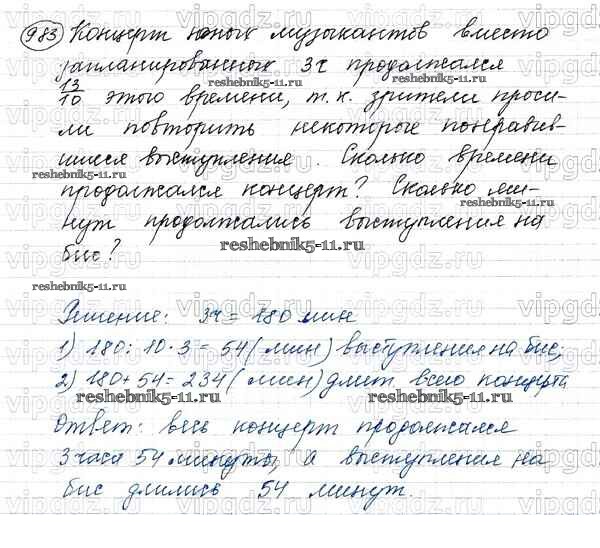 983 Концерт юных музыкантов вместо
запланированных 3ч продолжался
13/10 этого времени, т.к. зрители проси-
ли повторить некоторые понравив-
шиеся выступления. Сколько времени
продолжался концерт? Сколько ми-
нут продолжались выступления на
бис?
Решение: 3ч = 180 мин
1) 180 : 10 · 3 = 54 (мин) выступления на бис;
2) 180 + 54 = 234 (мин) длит. всего концерта
Ответ: весь концерт продолжался
3 часа 54 минуты, а выступления на
бис длились 54 минут.
vipgdz.ru
reshebnik5-11.ru